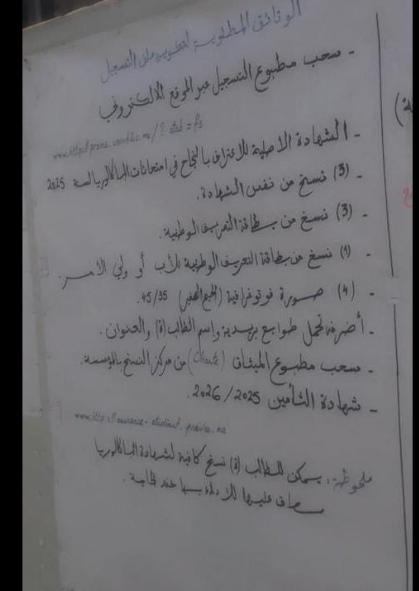 الوثائق المطلوبة لتكوين ملف التسجيل
- سحب مطبوع التسجيل عبر الموقع الالكتروني
- الشهادة الأصلية للاعتراف بالنجاح في امتحانات الباكالوريا لسنة 2025
- (3) نسخ من نفس الشهادة.
- (3) نسخ من بطاقة التعريف الوطنية.
- (1) نسخ من بطاقة التعريف الوطنية للأب أو ولي الأمر.
- (4) صورة فوتوغرافية (الحجم الصغير) 45/35.
- أظرفة تحمل طوابع بريدية واسم الطالب(ة) والعنوان.
- سحب مطبوع الميثاق (Charte) من مركز النسخ بالمؤسسة.
- شهادة التأمين 2025/2026.
ملحوظة: يمكن للطالب (ة) نسخ كافية لشهادة الباكالوريا
مصادق عليها للإدلاء بها عند الحاجة.